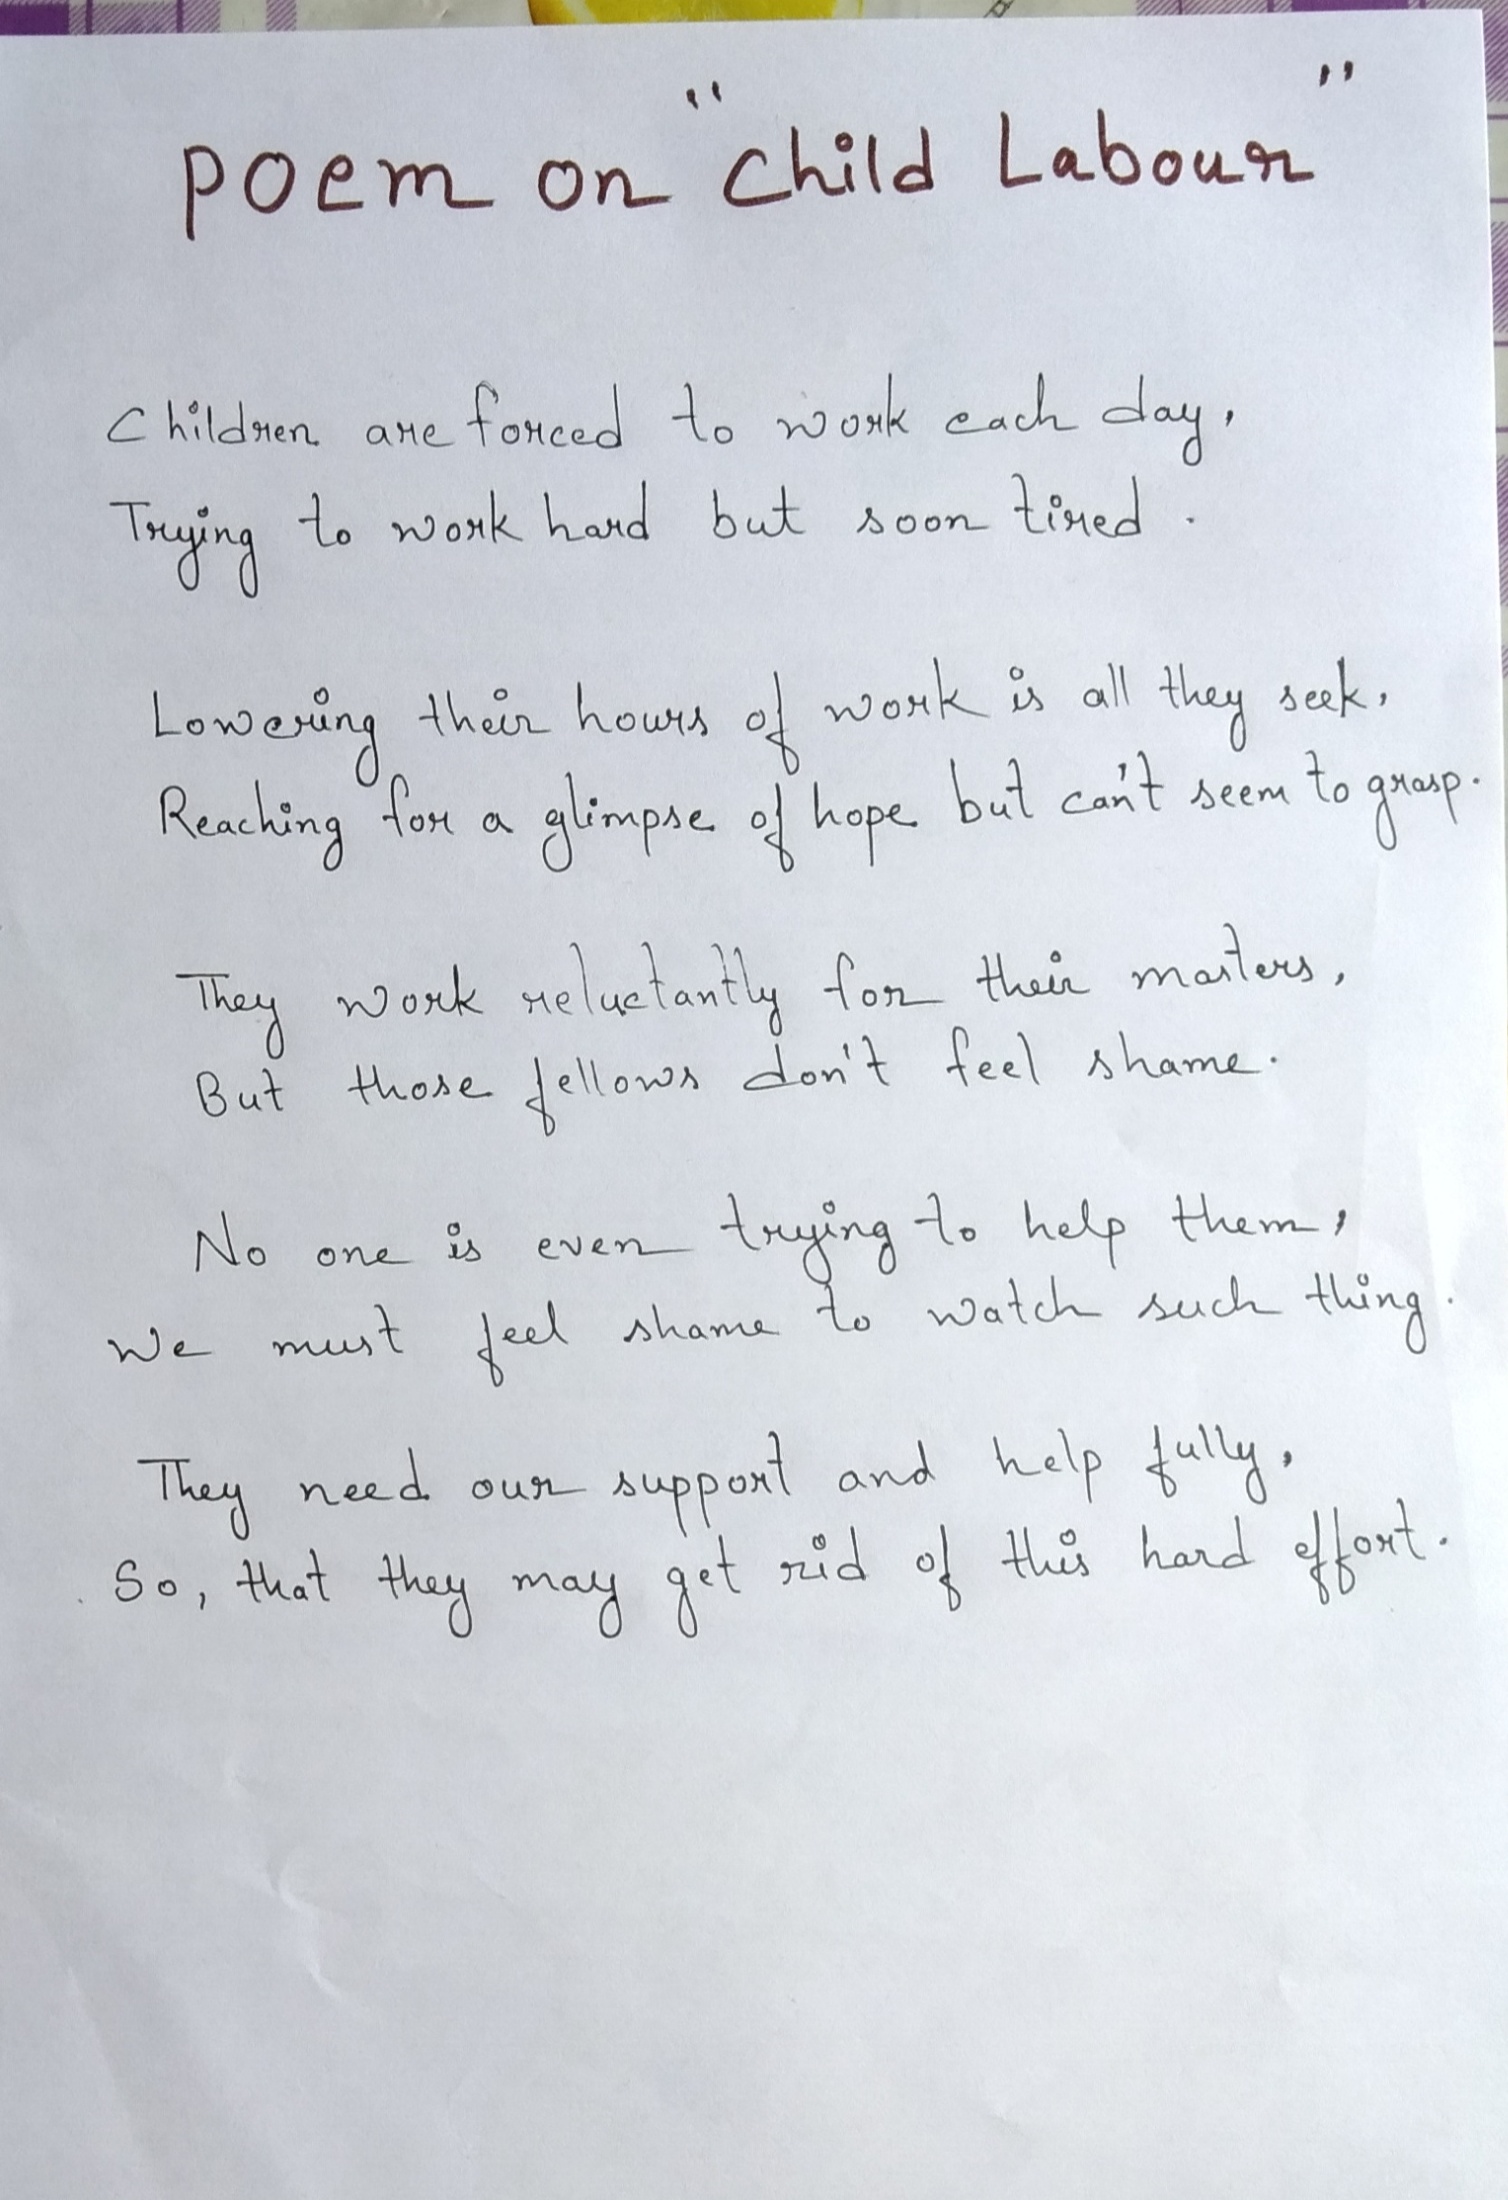 Poem on "Child Labour"
Children are forced to work each day,
Trying to work hard but soon tired.
Lowering their hours of work is all they seek,
Reaching for a glimpse of hope but can't seem to grasp.
They work reluctantly for their masters,
But those fellows don't feel shame.
No one is even trying to help them,
We must feel shame to watch such thing.
They need our support and help fully,
So, that they may get rid of this hard effort.